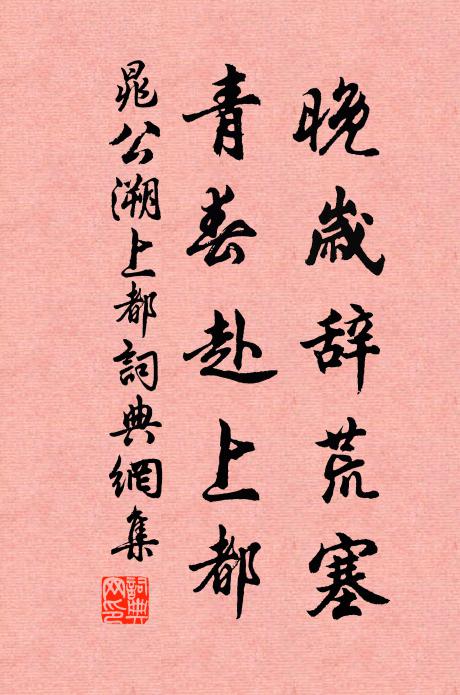 晚歲辞荒塞
青春赴上都
晁公溯上都詞典網集
詞典網印